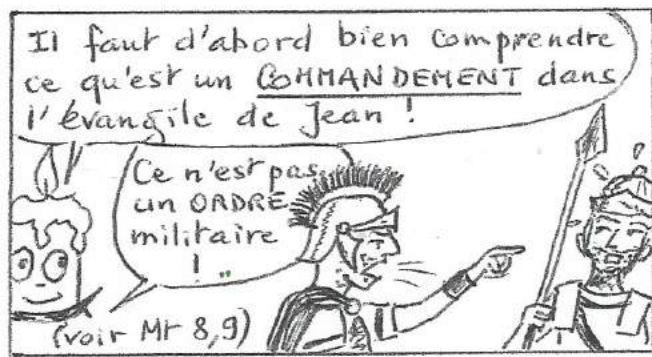 Il faut d'abord bien comprendre
ce qu'est un COMMANDEMENT dans
l'évangile de Jean !
Ce n'est pas
un ORDRE
militaire
! ..
(voir Mt 8,9)